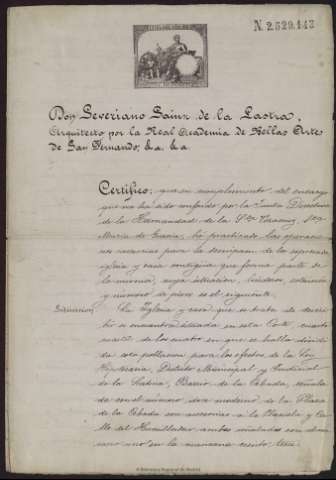 N. 2.529.143
Don Severiano Sainz de la Lastra,
Arquitecto por la Real Academia de Bellas Artes
de San Fernando, &a. &a.
Certifico: que en cumplimiento del encargo
que me ha sido conferido por la Junta Directiva
de la Hermandad de la Sta. Veracruz Sta.
María de Gracia, he practicado las operacio
nes necesarias para la descripcion de la espresada
iglesia y casa contigua que forma parte de
la misma, cuya situacion, linderos, estension
y número de pisos es el siguiente.
Situacion.
La Iglesia y casa que se trata de descri
bir se encuentra situada en esta Corte, cuarto
de los cuatro en que se halla dividi
da esta poblacion para los efectos de la Ley
Hipotecaria, Distrito Municipal y Judicial
de la Latina, Barrio de la Cebada, señala
da con el número dos moderno de la Plaza
de la Cebada con accesorias a la Plazuela y Ca
lle del Humilladero ambas señaladas con el nu
mero uno en la manzana ciento